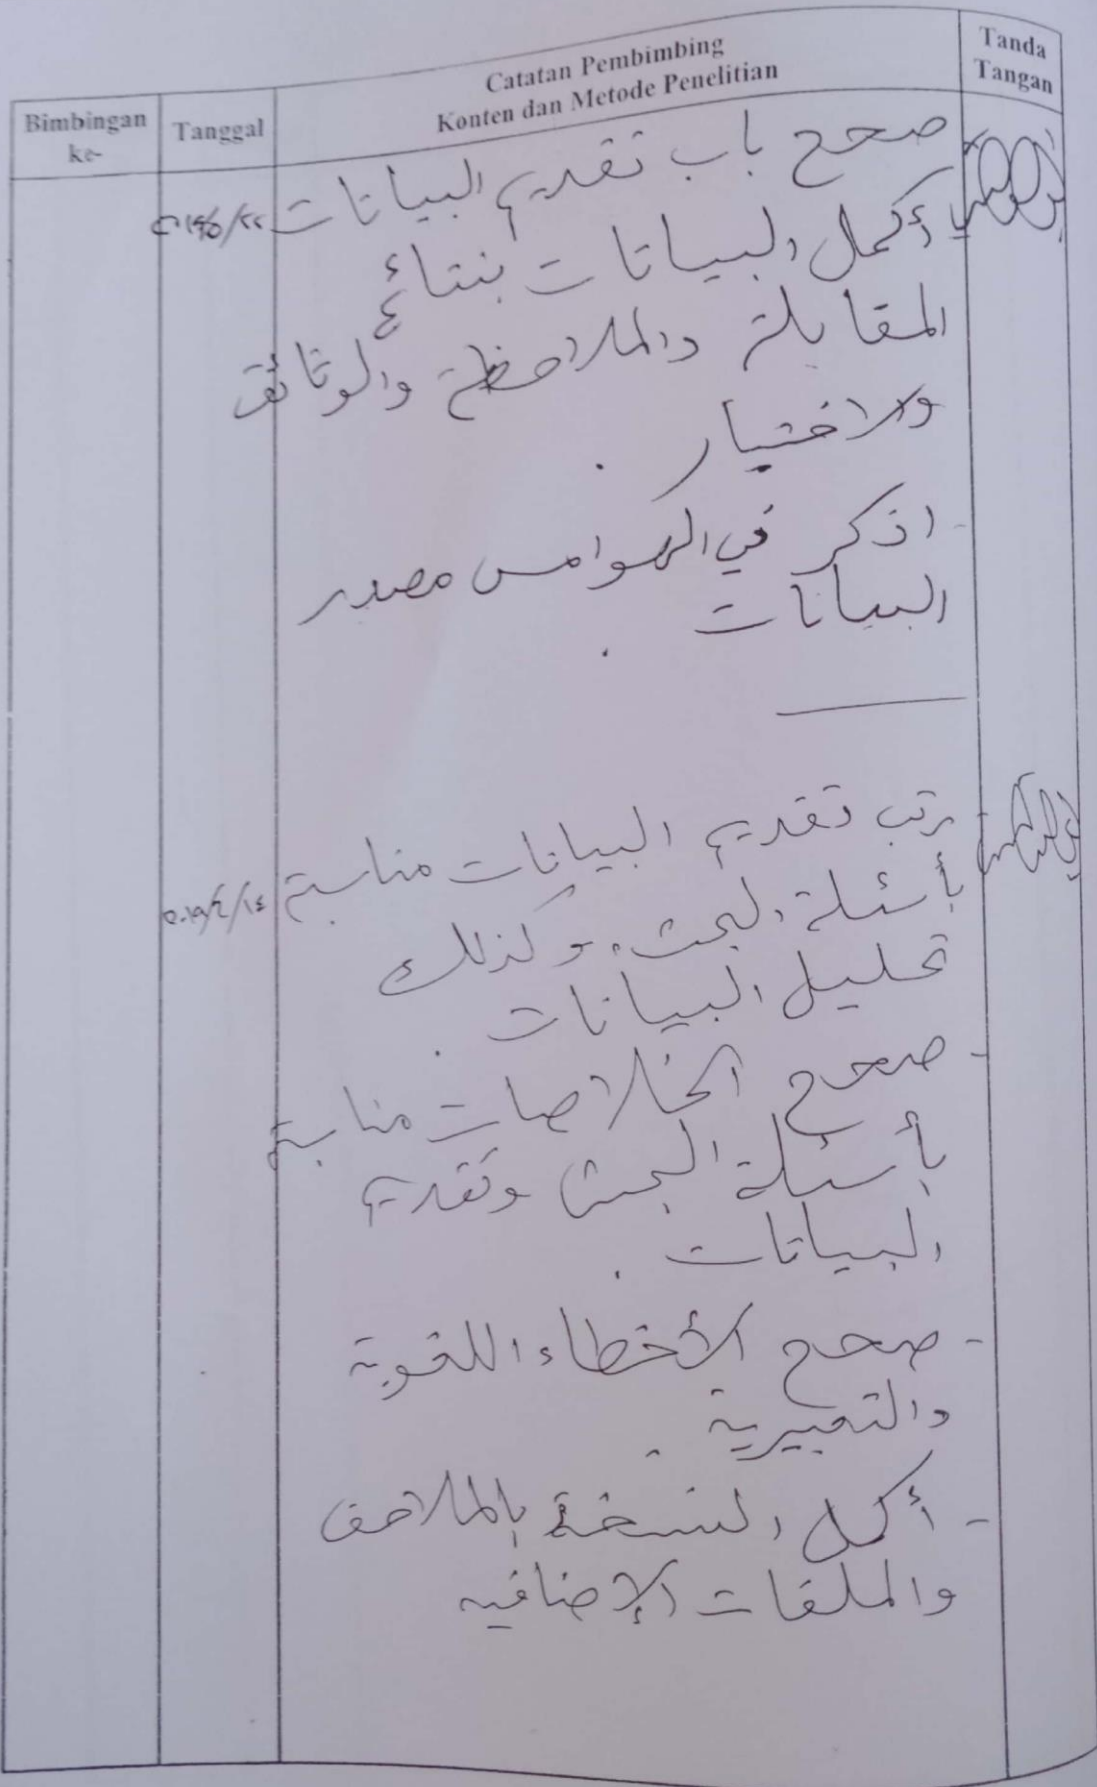 Bimbingan
ke-
Tanggal
Catatan Pembimbing
Konten dan Metode Penelitian
Tanda
Tangan
صحح باب تقديم البيانات
أكمال البيانات بنتائج
المقابلة والملاحظة والوثائق
والاختبار .
- اذكر في الهوامس مصدر
البيانات .
- رتب تقديم البيانات مناسبة
بأسئلة البحث، وكذلك
تحليل البيانات .
- صحح الخلاصات مناسبة
بأسئلة البحث وتقديم
البيانات .
- صحح الأخطاء اللغوية
والتعبيرية .
- أكمل النسخة بالملاحق
والملفات الإضافية